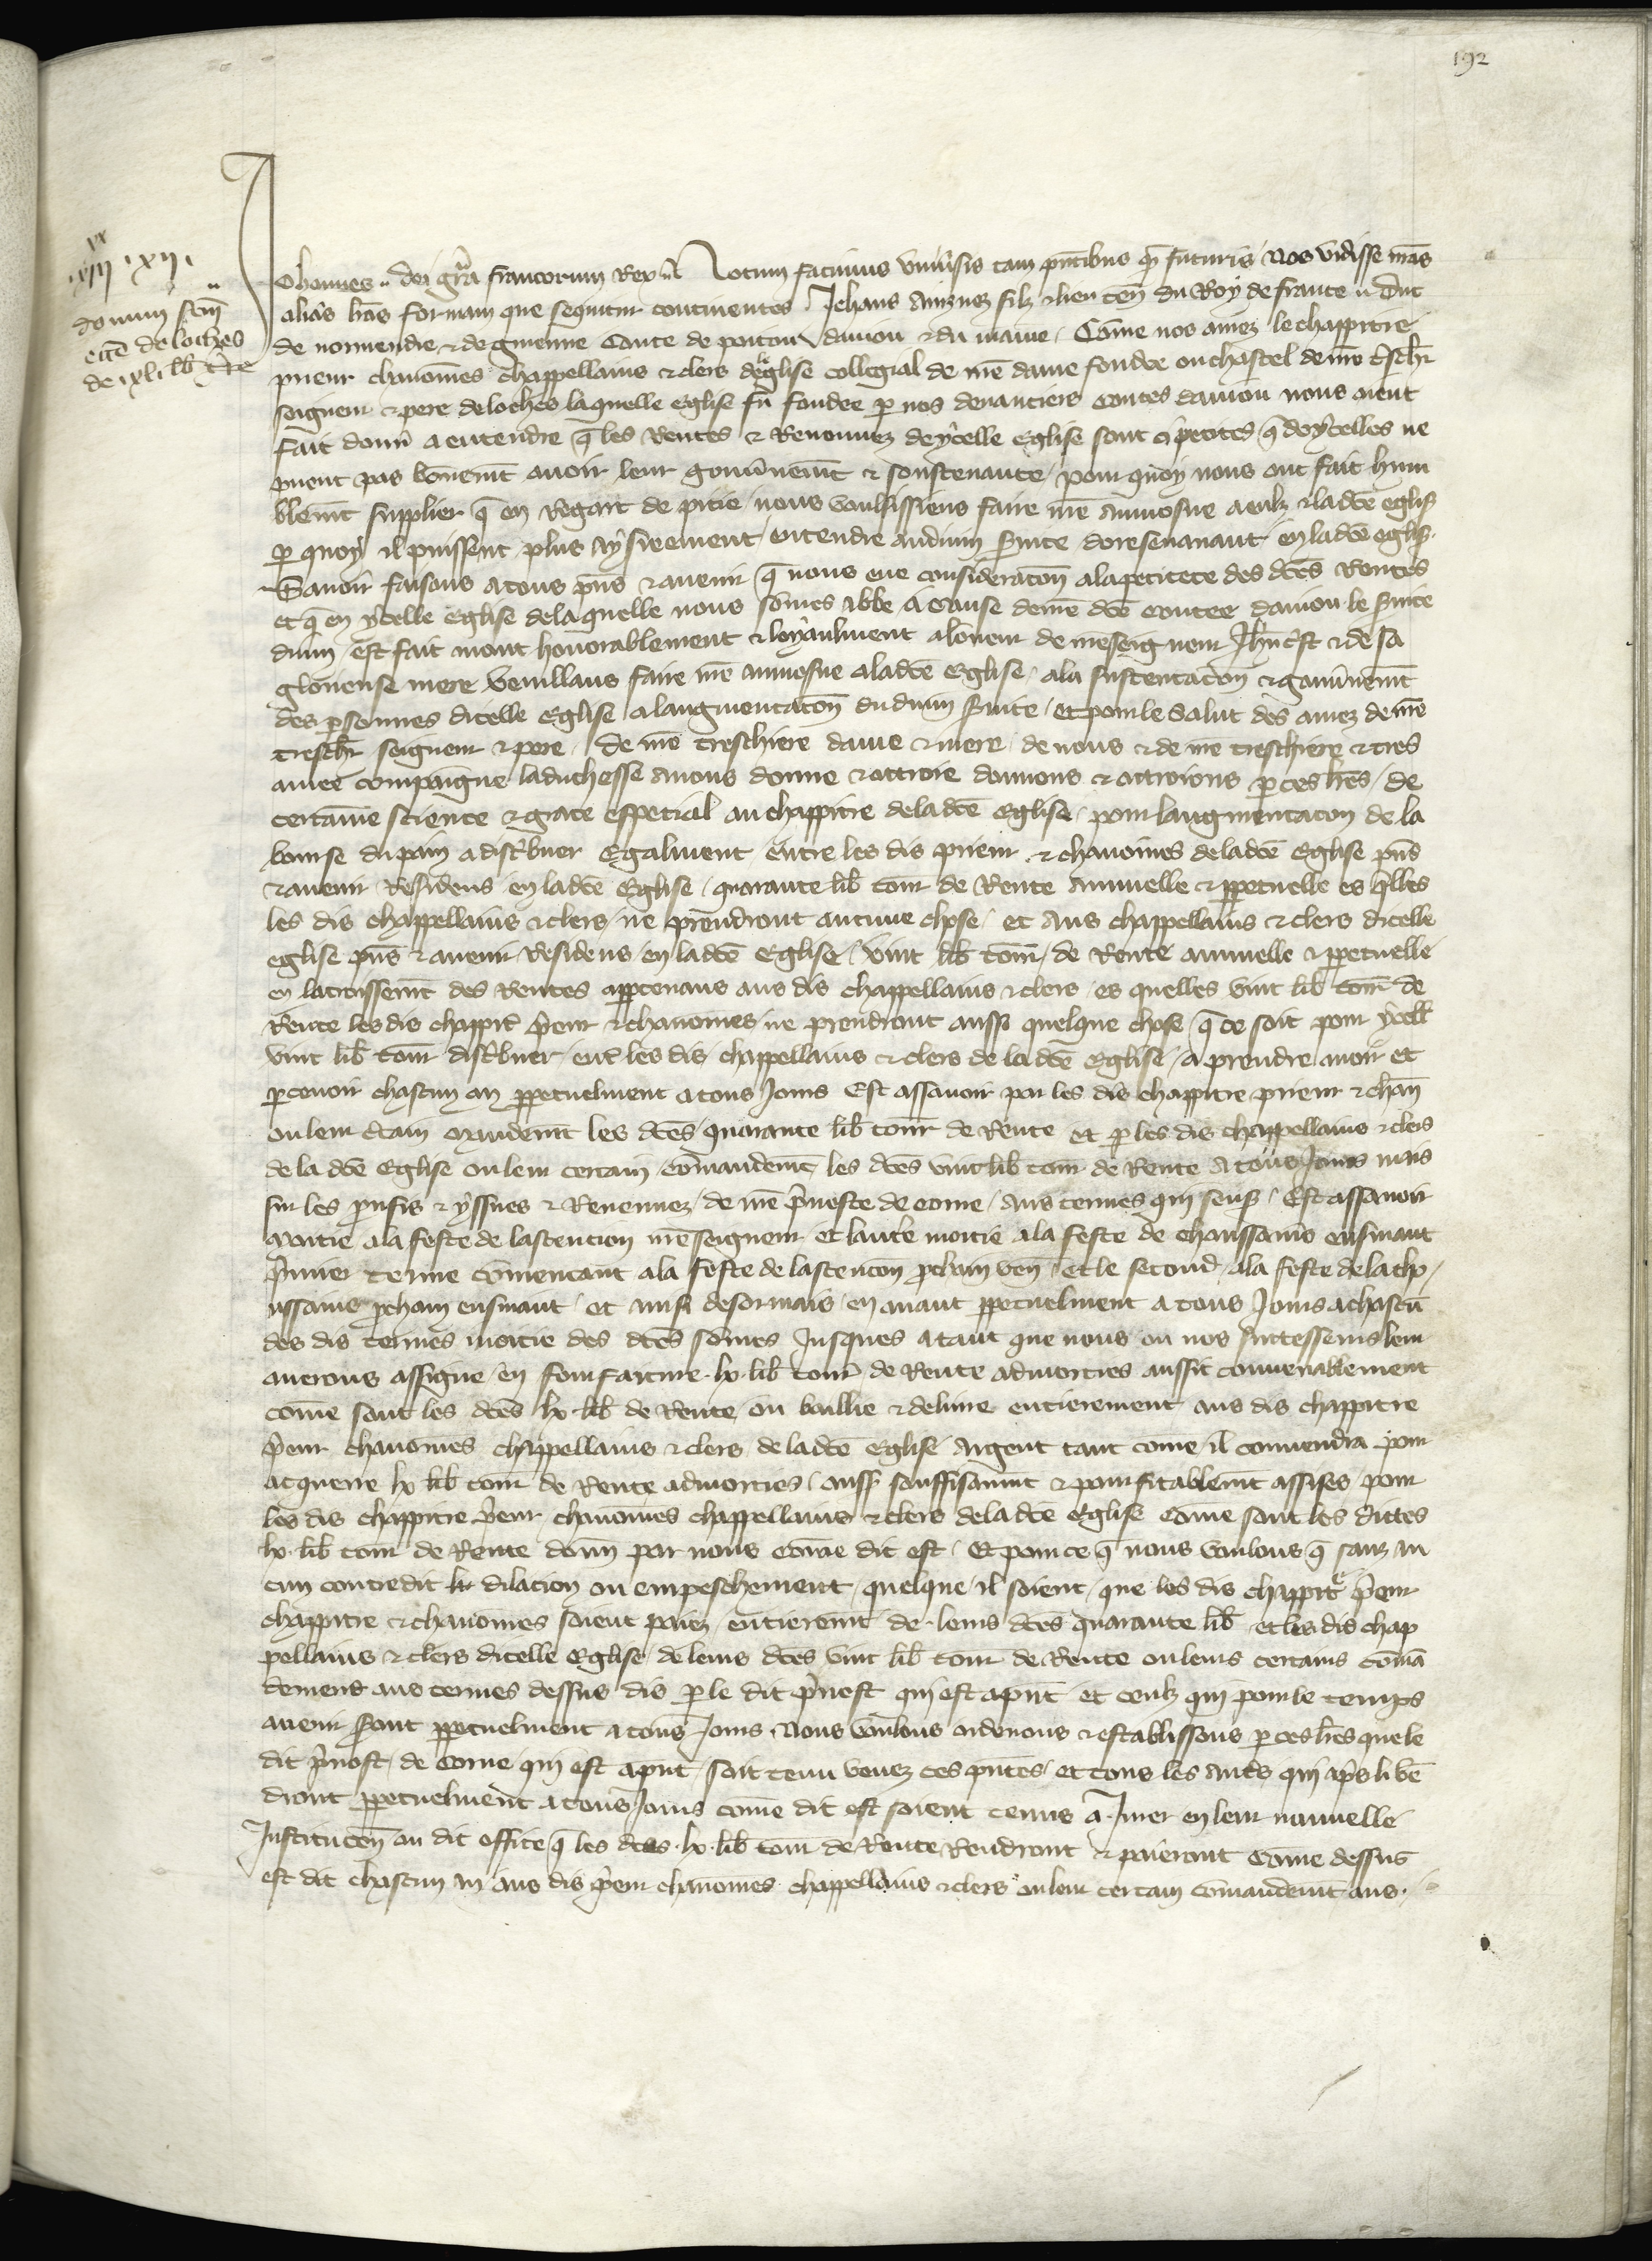 192
.iiii^xx.xii.
donum factum
ecclie de loches
de .lx. lib. t. re
Johannes dei gra francorum Rex Notum facimus universis tam pntibus qm futuris Nos vidisse nras
alias lras formam que sequitur continentes Jehans ainznez filz & lieu ten du Roy de france duc
de normendie & de guienne Conte de poitou danjou & du maine. Come nos amez le chappitre
prieur chanoines chappellains & clers de leglise collegial de nre dame fondee ou chastel de nre treschr
seigneur & pere de loches laquelle eglise fu fondee p nos devanciers contes danjou nous aient
fait donn a entendre q les Rentes & Revenuez dycelle eglise sont si petites q dycelles ne
puent pas bonemt avoir leur gouvnemt & soustenance / pour quoy nous ont fait hum
blemt supplier q en Regart de pitie nous voulsissiens faire nre aumosne a eulz & ladce eglise
p quoy il puissent plus aysieement entendre au divin svice doresenavant en ladce eglise.
Savoir faisons a tous pns & avenir q nous eue consideracon a la petitece des dces Rentes
et q en ycelle eglise de laquelle nous somes abbe a cause de nre dce contee danjou le svice
divin est fait mout honorablement & loyaulment a lonneur de nreseigneur Jhucrist & de sa
glorieuse mere veuillans faire nre aumosne a ladce Eglise a la sustentacion & gouvnemt
des psonnes dicelle eglise a laugmentacon du divin svice et pour le salut des ames de nre
treschr seigneur & pere de nre treschiere dame & mere de nous & de nre treschiere & tres
amee compaigne la duchesse avons donne & ottroie donnons & ottroions p ces lres / de
certaine science & grace especial au chappitre de ladce eglise pour laugmentacon de la
bourse du pain a distbuer egalment entre les dis prieur & chanoines de ladce eglise pns
& avenir Residens en ladce Eglise quarante lib tour de Rente annuelle & ppetuelle es qlles
les dis chappellains & clers ne prendront aucune chose et aus chappellains & clers dicelle
eglise pns & avenir Residens en ladce Eglise vint lib tour de Rente annuelle & ppetuelle
en lacroissemt des Rentes apptenans aus dis chappellains & clers es quelles vint lib tour de
Rente les dis chappitr prieur & chanoines ne prendront aussi quelque chose q ce soit pour ycell
vint lib tour distbuer entr les dis chappellains & clers de la dce Eglise a prendre avoir et
pcevoir chascun an ppetuelment a tous Jours Est assavoir par les dis chappitre prieur & chan
ou leur ctain mandemt les dces quarante lib tour de Rente et p les dis chappellains & clers
de la dce Eglise ou leur certain comandemt les dces vint lib tour de Rente a tous Jours mais
sur les prufis & yssues & Revenuez de nre pvoste de come aus termes qui senss Est assavoir
moitie a la feste de lascencion nreseigneur et lautre moitie a la feste de thoussains ensuivant
pmier terme comencant a la feste de lascencon pcham ven et le second a la feste de la tho
ussains pcham ensuivant et ainsi desormais en avant ppetuelment a tous Jours a chascu
des dis termes moitie des dces somes Jusques a tant que nous ou nos successeurs leur
averons assigne en fourfaiture .lx. lib tour de Rente admorties aussit convenablement
come sont les dces lx. lib de Rente ou baillie & delivre entierement aus dis chappitre
prieur chanoines chappellains & clers de ladce Eglise argent tant come il convendra pour
acquerre lx lib tour de Rente admorties aussi souffisamt & pourfitablemt assises pour
les dis chappitre prieur chanoines chappellains & clers de ladce Eglise come sont les dictes
lx. lib tour de Rente donn par nous come dit est. Et pour ce q nous voulons q sanz au
cun contredit dilacion ou empeschement quelque il soient que les dis chappitre prieur
chappitre & chanoines soient paiez entieremt de leurs dces quarante lib et les dis chap
pellains & clers dicelle Eglise de leurs dces vint lib tour de Rente ou leurs certains coma
demens aus termes dessus dis p le dit pvost qui est apnt et ceulz qui pour le temps
avenir sont ppetuelment a tous Jours. Nous voulons ordenons & establissons p ces lres que le
dit pvost de come qui est apnt soit tenu venez ces pntes et tous les auts qui aps li ven
dront ppetuelment a tous Jours come dit est soient tenus a Jurer en leur nouvelle
Institucon ou dit office q les dces .lx. lib tour de Rente Rendront & paieront come dessus
est dit chascun an aus dis prieur chanoines chappellains & clers ou leur certain comandemt aus.